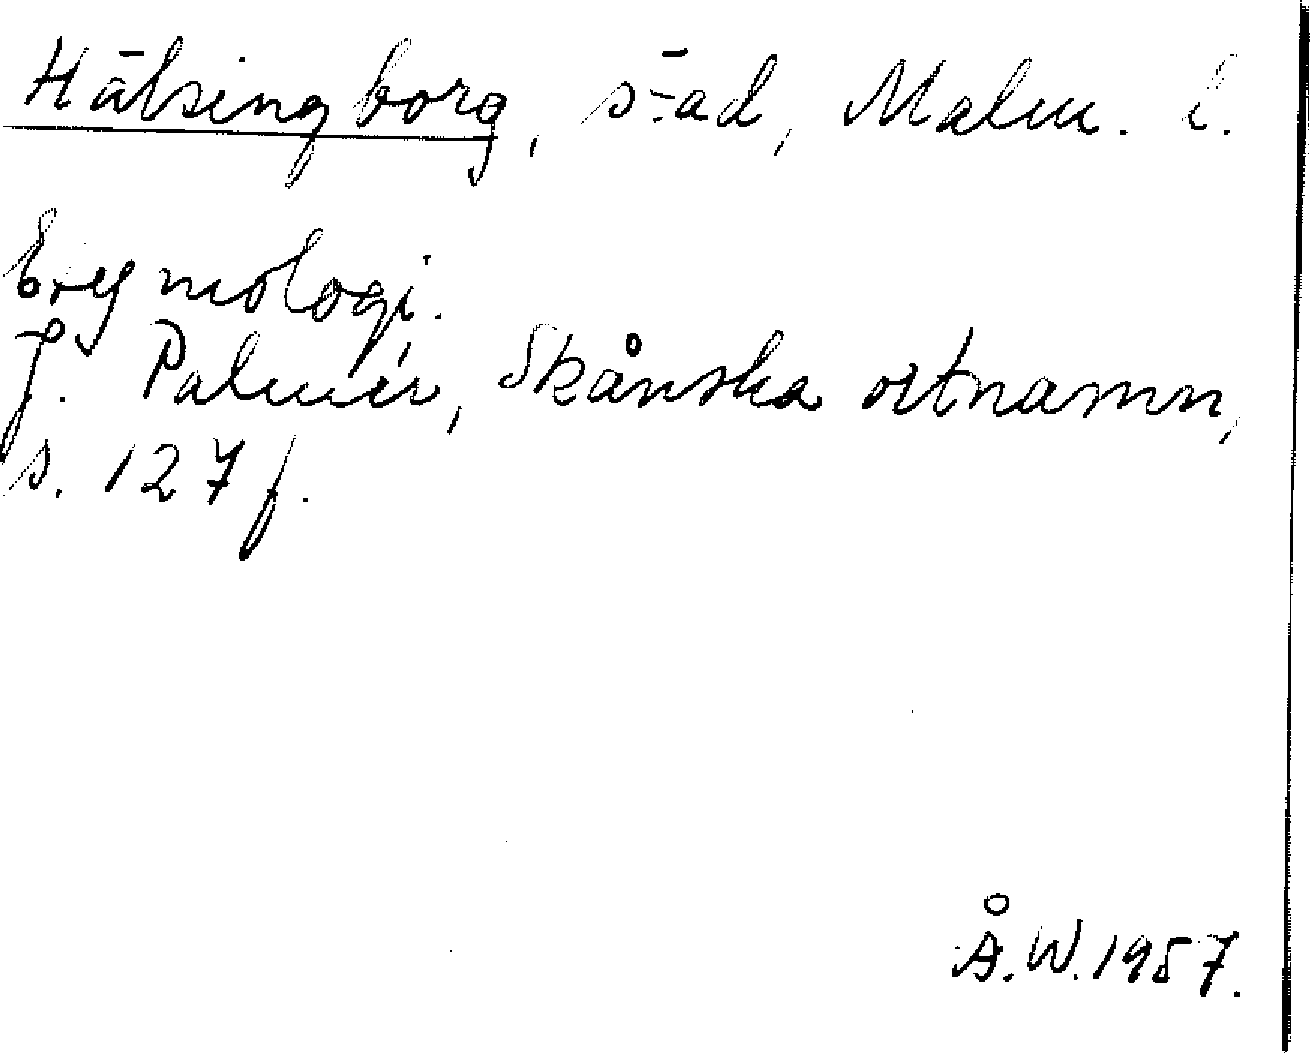 Hälsingborg, stad, Malm. l.
Etymologi.
J. Palmér, Skånska ortnamn,
s. 127 f.
Å.W. 1957.